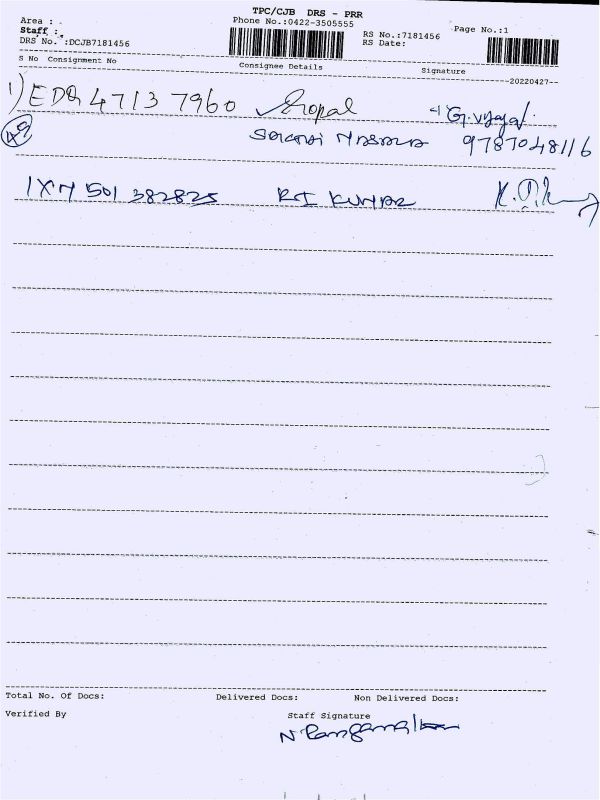 TPC/CJB DRS - PRR
Area :
Phone No.:0422-3505555
Page No.:1
Staff :
RS No.:7181456
DRS No. :DCJB7181456
RS Date:
S No Consignment No
Consignee Details
Signature
20220427
1) EDQ 47137960 Gopal G. Vijaya
9787048116
1X7 501 382825 KUMAR
Total No. Of Docs:
Delivered Docs:
Non Delivered Docs:
Verified By
Staff Signature